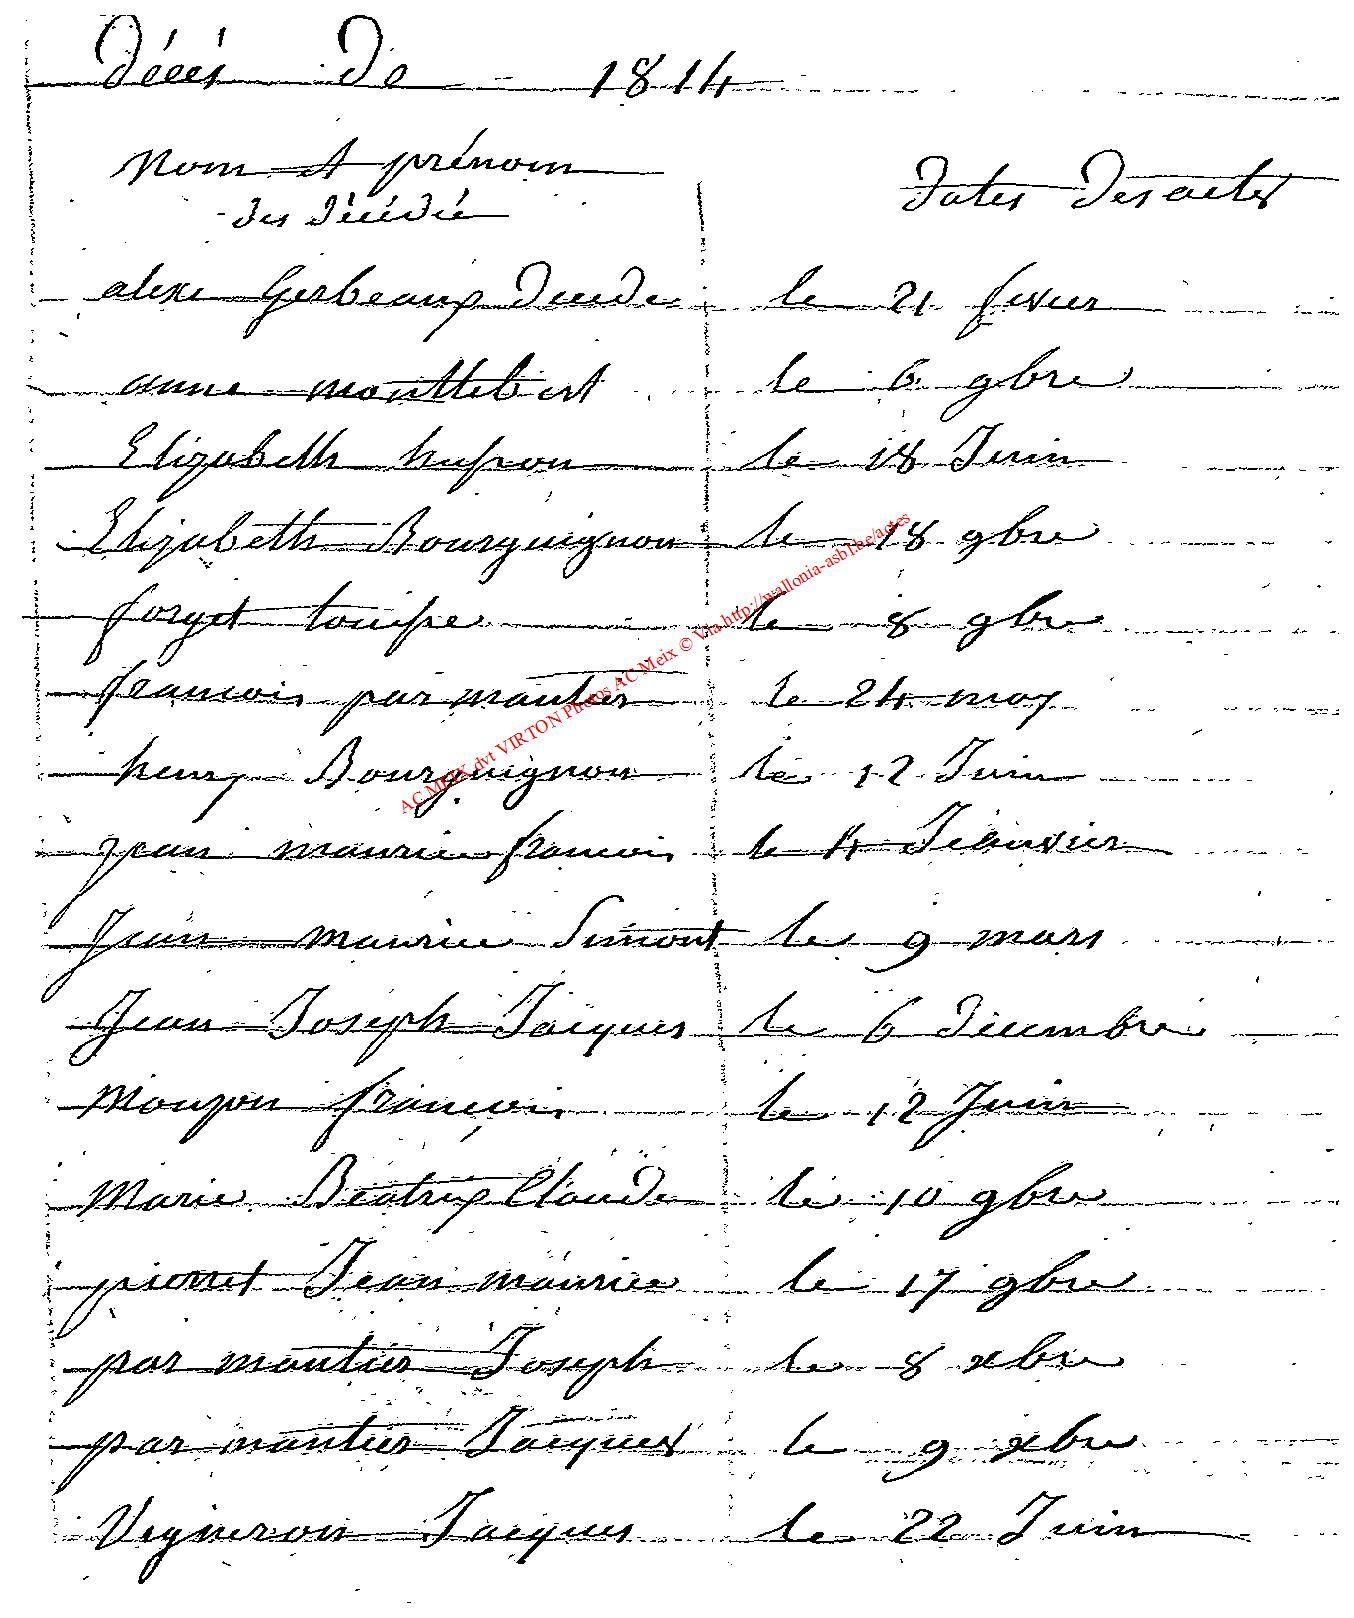 Décés De 1814
Nom et prénom Dates Des actes
des décédé
alexi Gerbeaux Décédé le 21 fevrier
anne monttebert le 6 9bre
Elizabeth husson le 18 Juin
Elizabeth Bourguignon le 18 9bre
forget louise le 8 9bre
francois parmantier le 24 may
henry Bourguignon le 12 Juin
jean maurice francois le 4 Jeanvier
Jean maurice Simont le 9 mars
Jean Joseph Jacques le 6 Décembre
Mouzon françois le 12 Juin
Marie Beatrix Claude le 10 9bre
pierret Jean maurice le 17 9bre
parmantier Joseph le 8 xbre
parmantier Jacques le 9 xbre
Vigneron Jacques le 22 Juin
AC MEIX dvt VIRTON Photos AC Meix © Via http://wallonia-asbl.be/actes